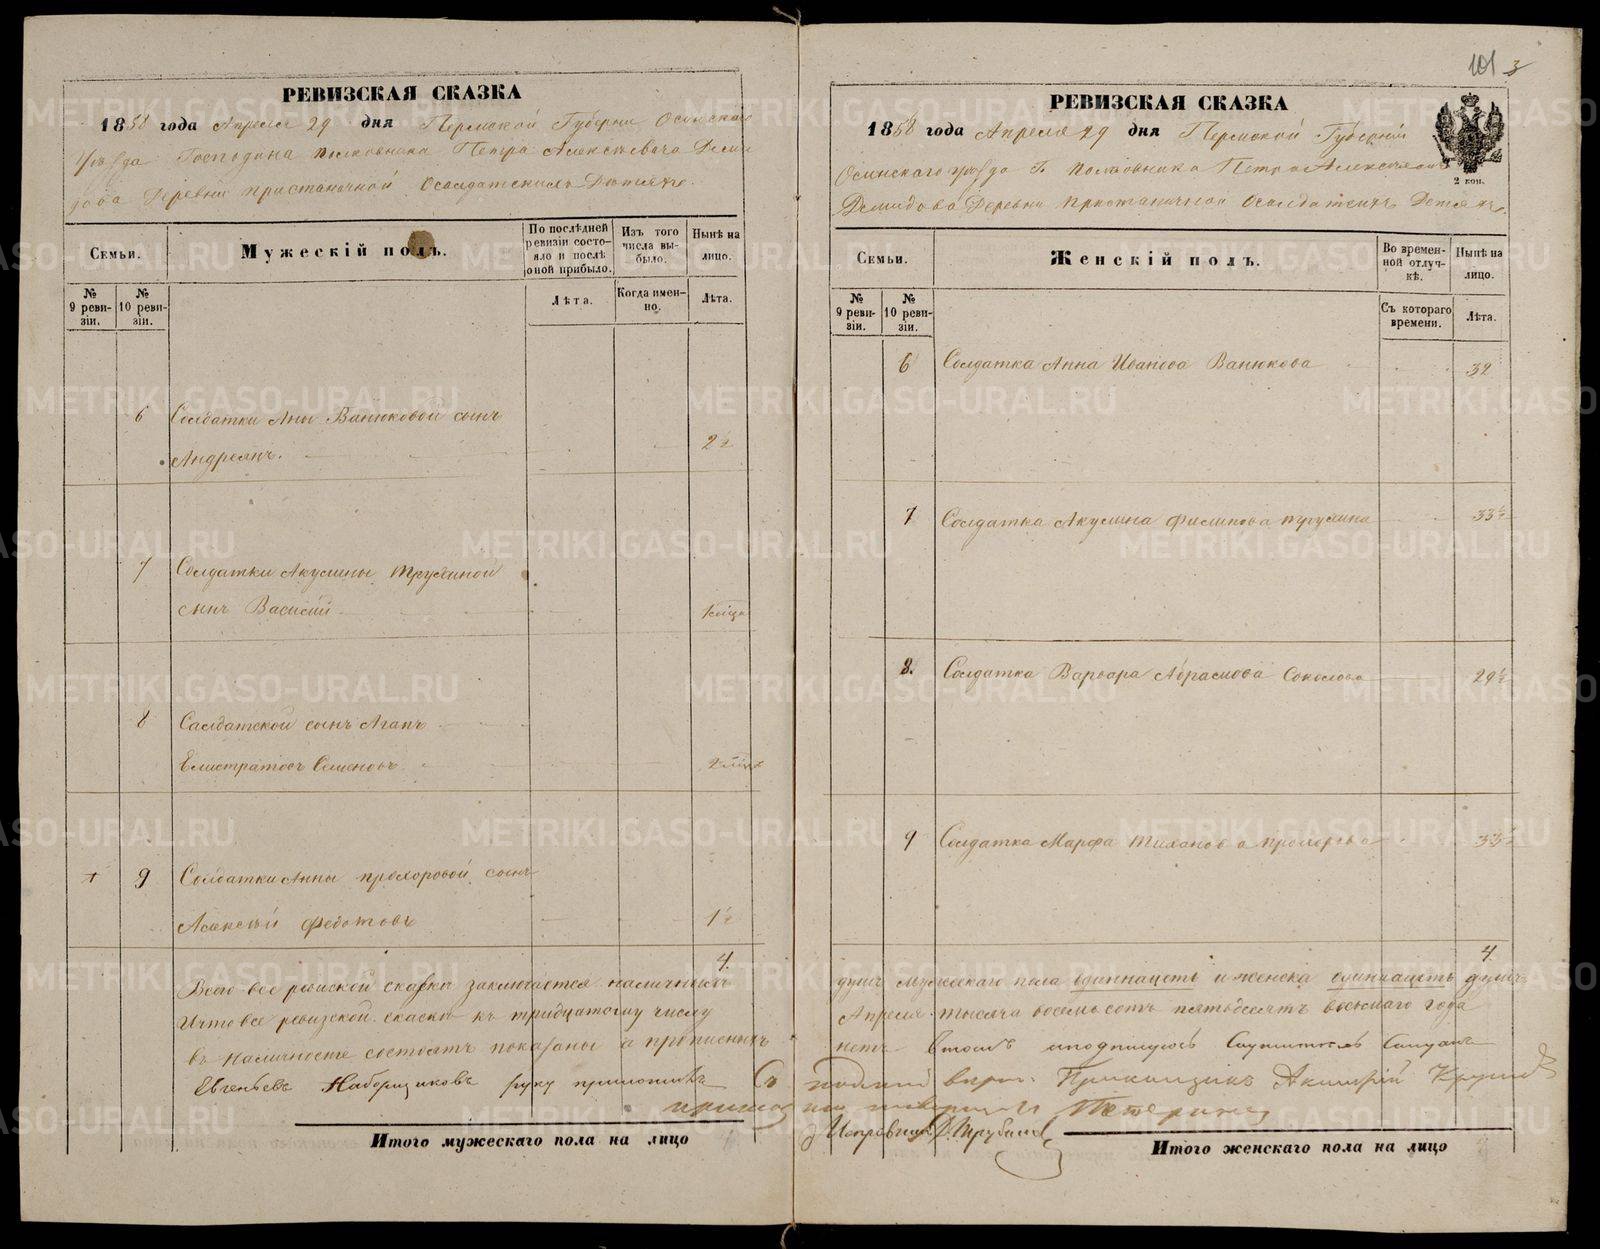 РЕВИЗСКАЯ СКАЗКА
1858 года Апреля 29 дня Пермской Губернии Осинскаго
Уѣзда Господина Полковника Петра Алексѣевича Деми
дова Деревни Пристаничной Осолдатскихъ Дѣтяхъ.
Семьи.
Мужескій полъ.
По послѣдней ревизіи состояло и послѣ оной прибыло.
Изъ того числа выбыло.
Нынѣ на лицо.
№ 9 ревизіи.
№ 10 ревизіи.
Лѣта.
Когда именно.
Лѣта.
6 Солдатки Аны Ванюковой сынъ
Андреянъ. 2½
7 Солдатки Акулины Трубиной
сынъ Василій
8 Салдатской сынъ Агапъ
Елистратовъ Семеновъ
9 Солдатки Анны прохоровой сынъ
Алексѣй Федотовъ 1½
4
Всего все ревиской скаски заключается наличныхъ
Ичто все ревизской скаски къ тридцатому числу
въ наличности состоятъ показаны а прописныхъ
Евгеньевъ Наборщиковъ руку приложилъ
Итого мужескаго пола на лицо
101 3
РЕВИЗСКАЯ СКАЗКА
2 коп.
1858 года Апреля 29 дня Пермской Губерніи
Осинскаго уѣзда Г. Полковника Петра Алексѣевич
Демидова Деревни Пристаничной Осолдатскихъ Дѣтяхъ.
Семьи.
Женскій полъ.
Во временной отлучкѣ.
Нынѣ на лицо.
№ 9 ревизіи.
№ 10 ревизіи.
Съ котораго времени.
Лѣта.
6 Солдатка Анна Иванова Ванюкова 32
7 Солдатка Акулина Филипова Трубина 33½
8. Солдатка Варвара Абрамова Соколова 29½
9 Солдатка Марфа Тиханова прохорова 33½
4
душъ мужескаго пола одиннацеть и женска одиннацеть душъ
Апреля тысяча восемьсотъ пятьдесятъ восьмаго года
нетъ Втомъ иподпишуюсь
Приказчикъ
Исправникъ
Итого женскаго пола на лицо
METRIKI.GASO-URAL.RU